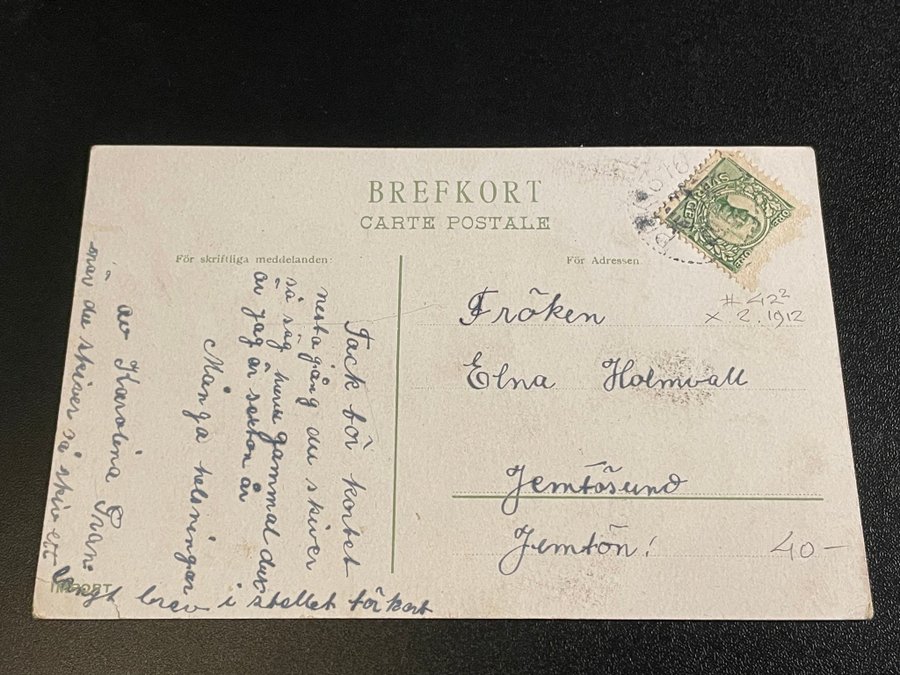 BREFKORT
CARTE POSTALE
För skriftliga meddelanden:
För Adressen.
Tack för kortet
nesta gång du skiver
så säg huru gammal du är
av jag är sexton år
Många helsningar
av Karolina Gran
när du skiver så skiv ett
langt brev i stellet för kort
Fröken
Elna Holmvall
Jemtösund
Jemtön!
# 42²
x 2.1912
40-
SVERIGE
IMPORT